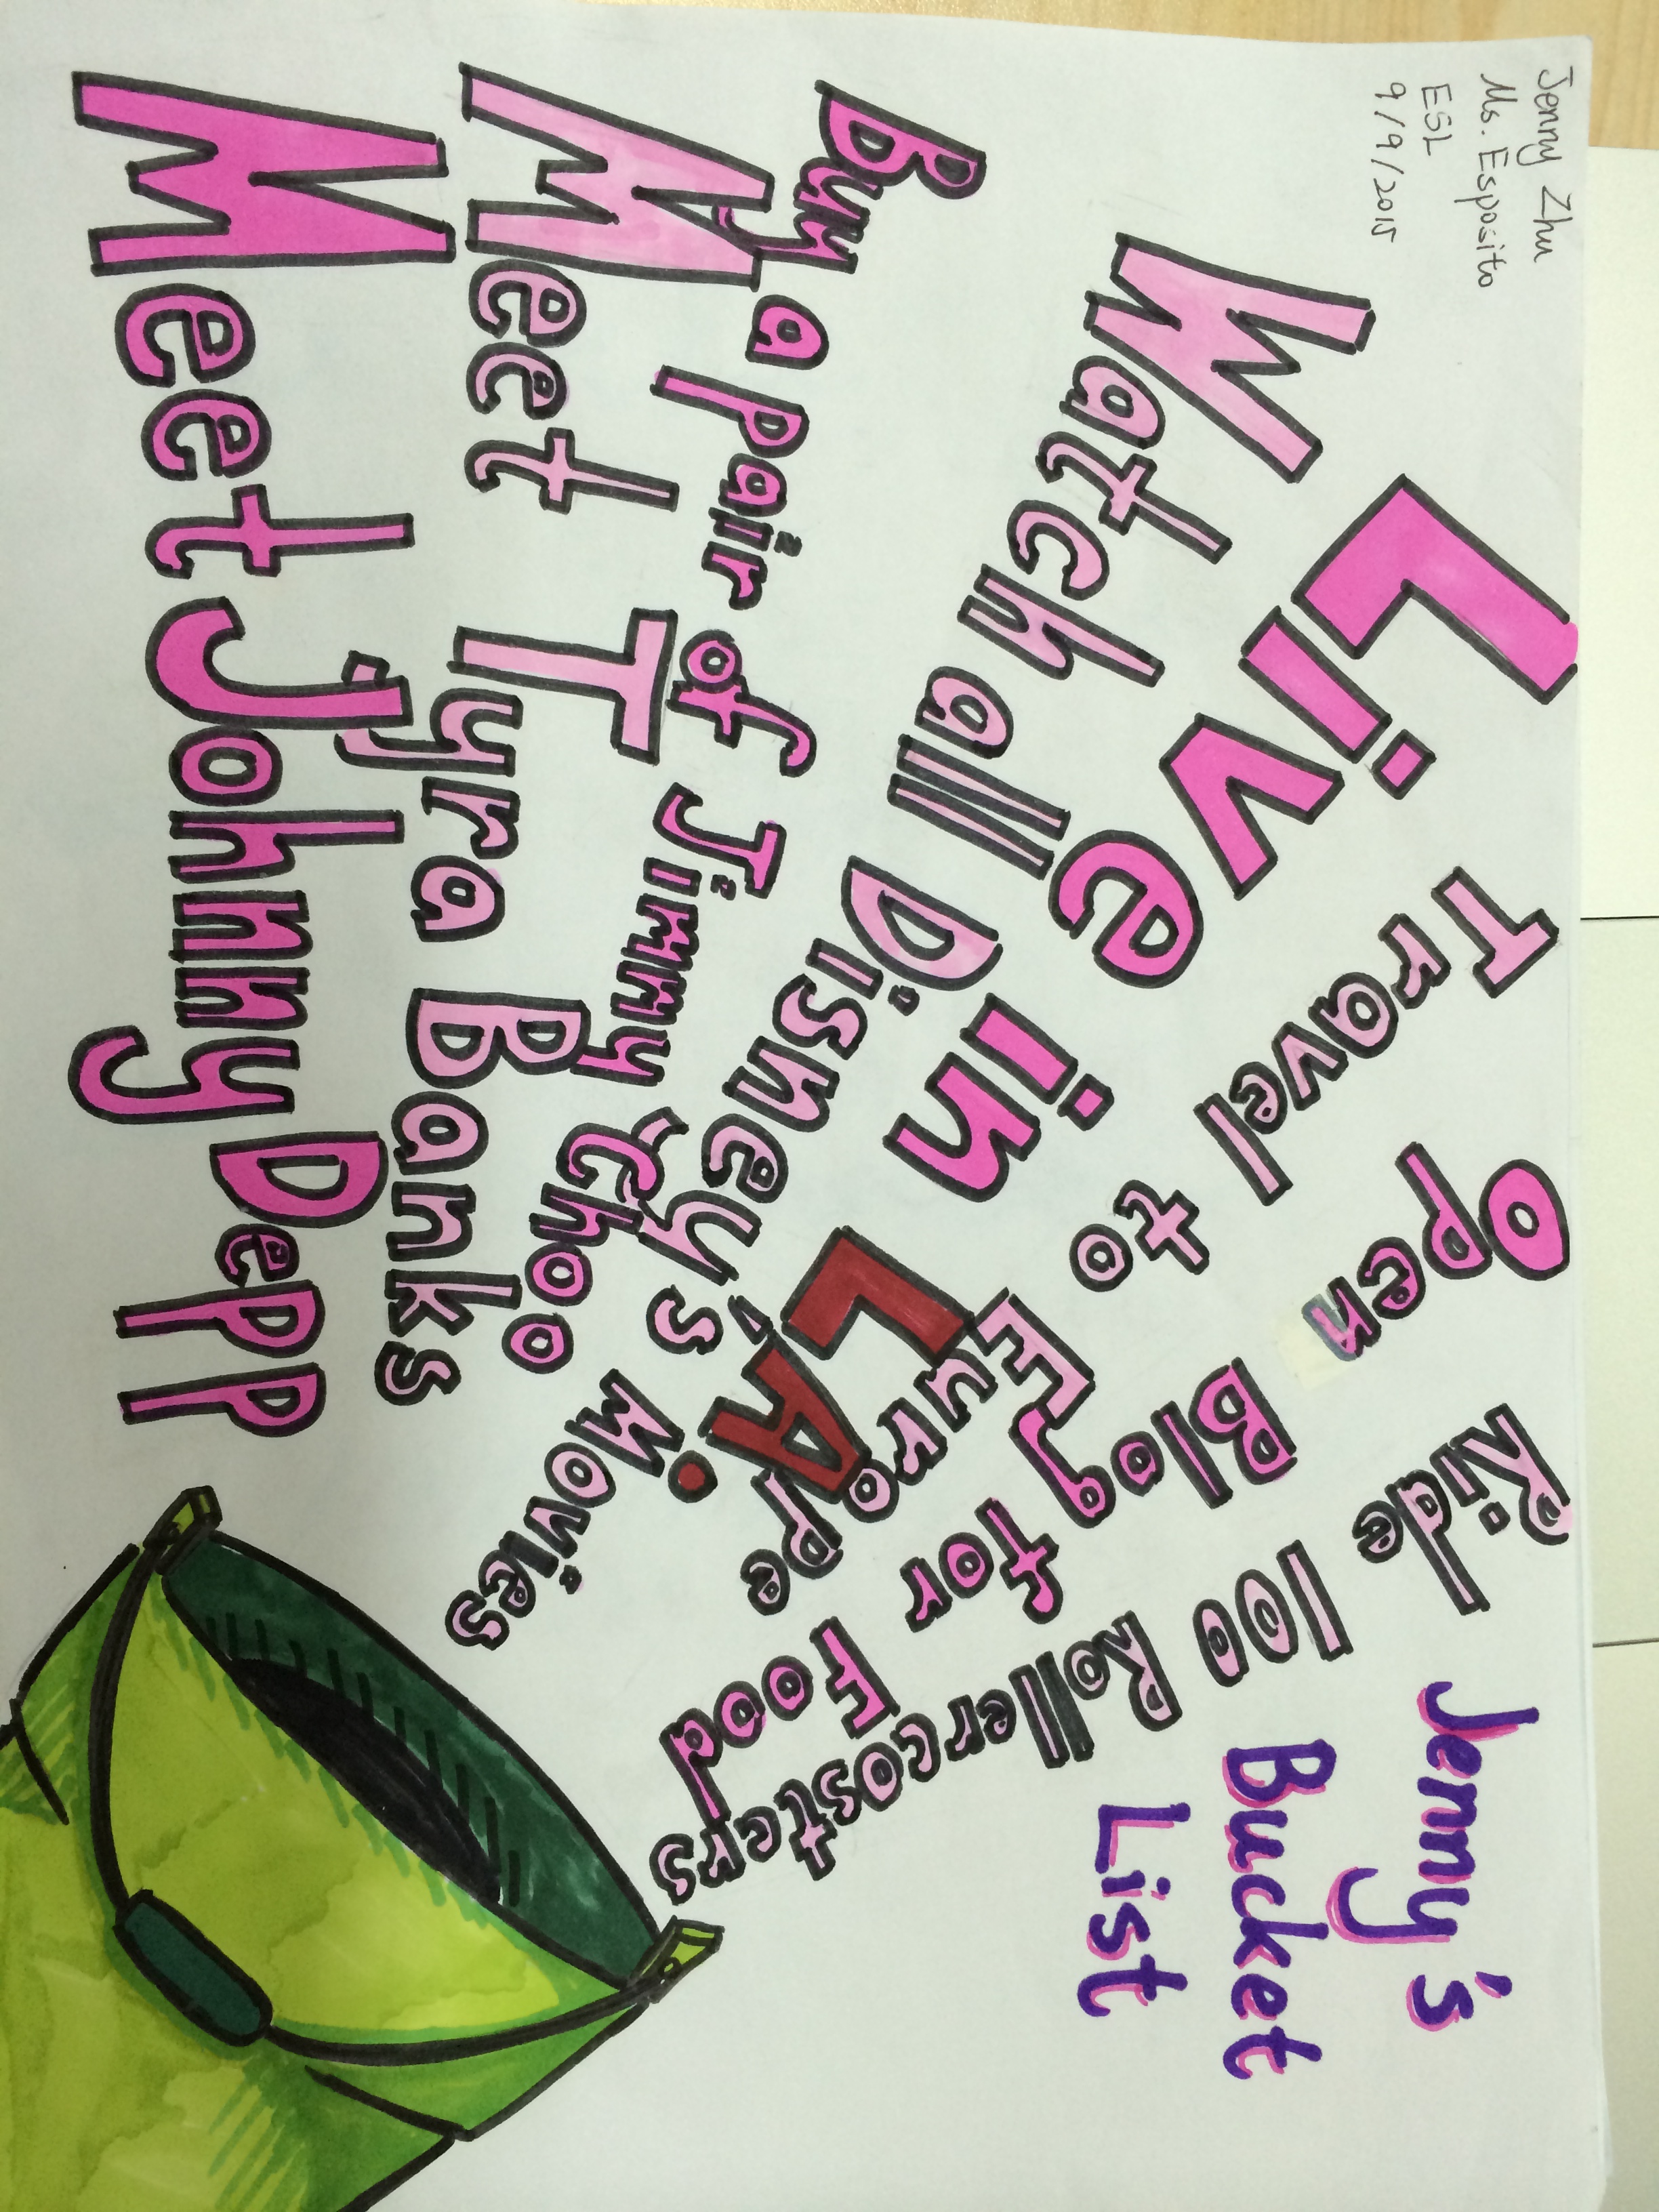 Jenny Zhu
Ms. Esposito
ESL
9/9/2015
Jenny's
Bucket
List
Ride 100 Rollercosters
Open Blog for Food
Travel to Europe
Live in LA.
Watch all Disney's Movies
Buy a pair of Jimmy Choo
Meet Tyra Banks
Meet Johnny Depp